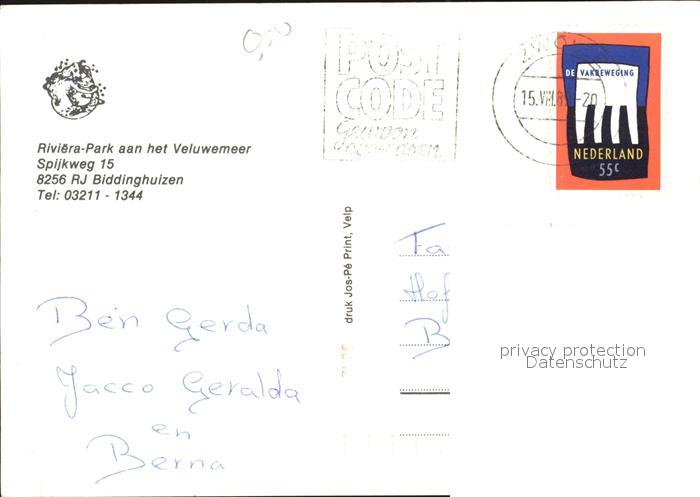 0,50
POST
CODE
Gewoon
doen
ZWO
15.VIII.8 -20
DE VAKBEWEGING
NEDERLAND
55c
Riviëra-Park aan het Veluwemeer
Spijkweg 15
8256 RJ Biddinghuizen
Tel: 03211 - 1344
druk Jos-Pé Print, Velp
Fa
Hof
B
Ben Gerda
Jacco Geralda
en
Berna
privacy protection
Datenschutz